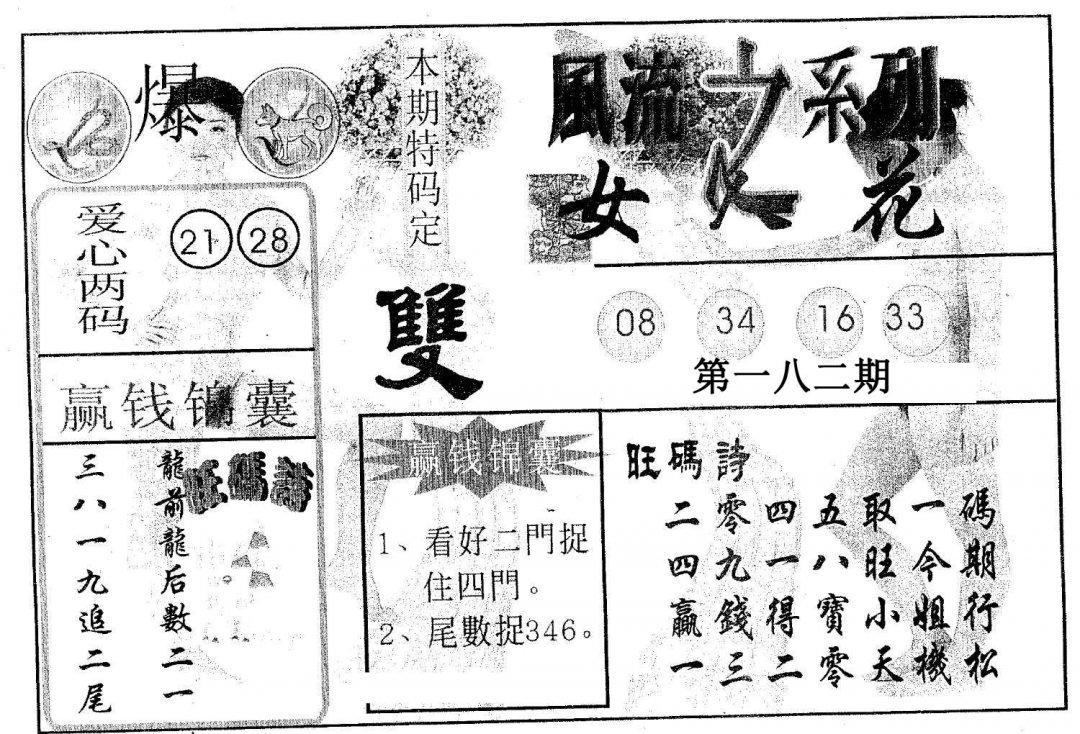 爆
本期特码定
雙
風流之系列
女人花
爱心两码
21 28
08 34 16 33
第一八二期
赢钱锦囊
旺碼詩
龍前龍后數二一
三八一九追二尾
赢钱锦囊
1、看好二門捉
住四門。
2、尾數捉346。
旺碼詩
二零四五取一碼
四九一八旺今期
贏錢得寶小姐行
一三二零天機松